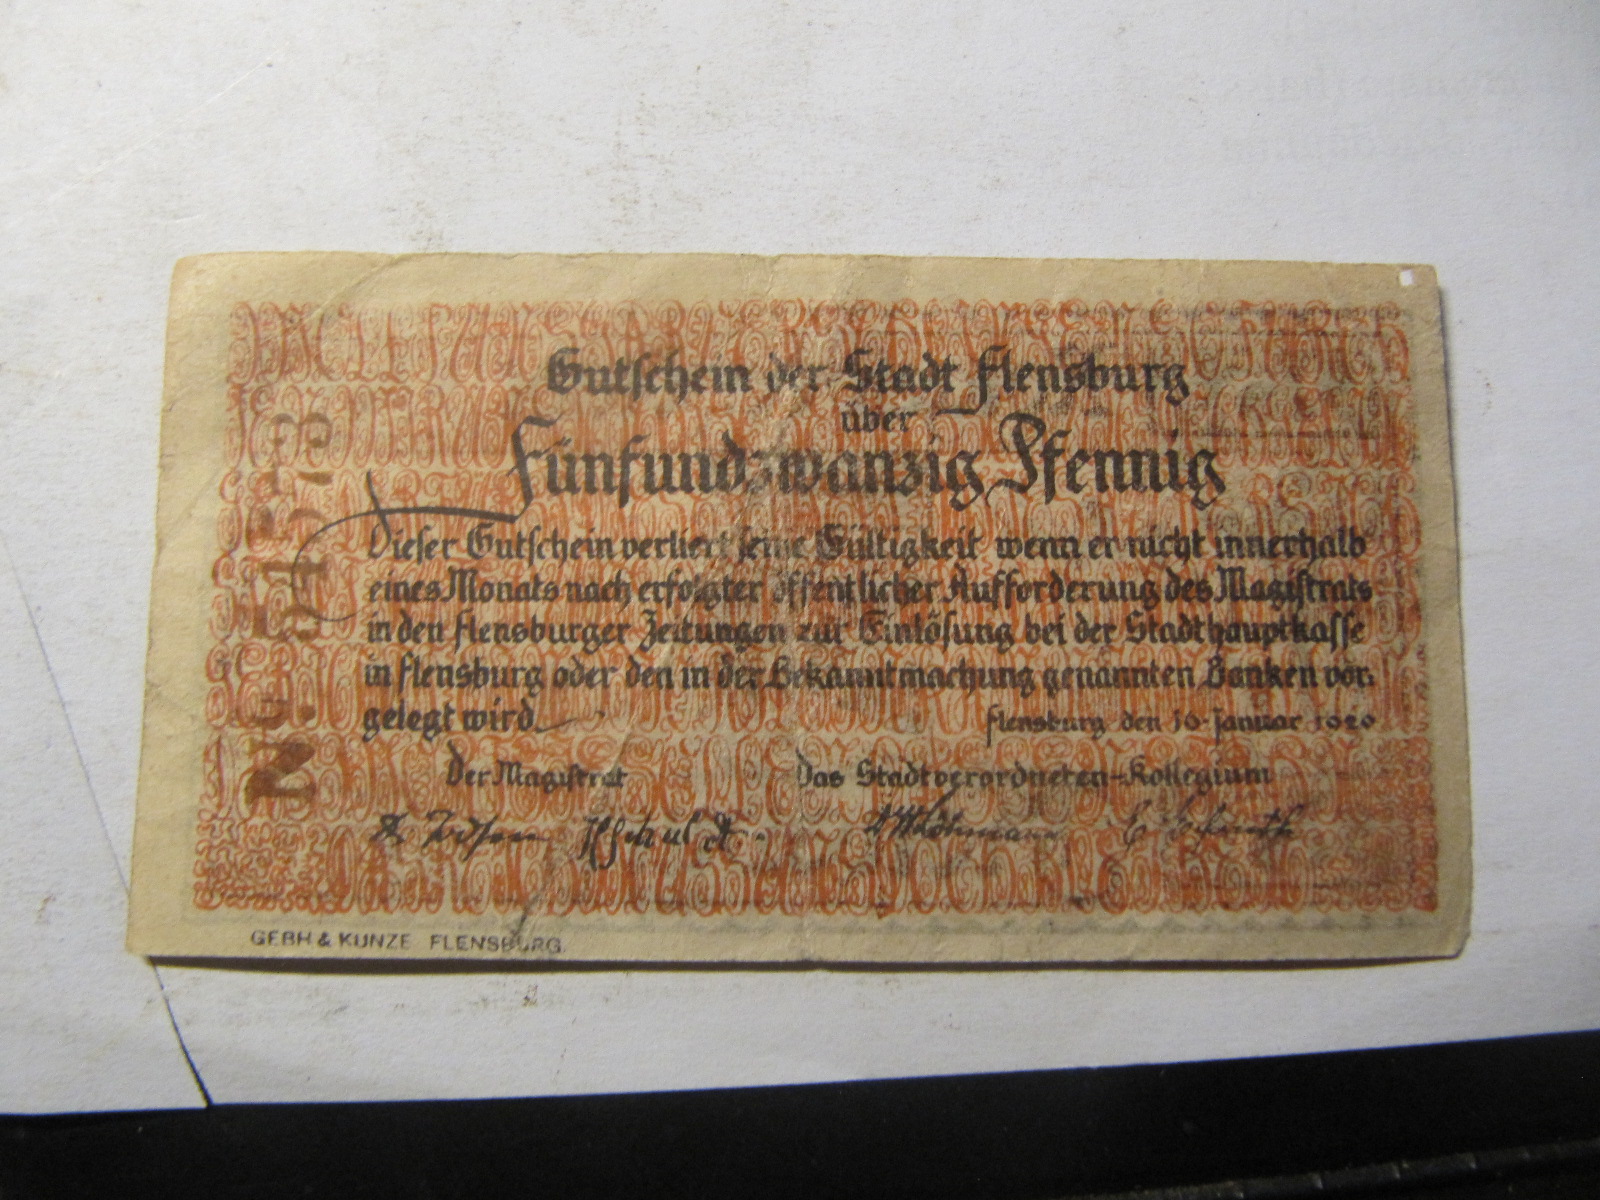 Gutschein der Stadt Flensburg
über
Fünfundzwanzig Pfennig
Dieser Gutschein verliert seine Gültigkeit wenn er nicht innerhalb
eines Monats nach erfolgter öffentlicher Aufforderung des Magistrats
in den Flensburger Zeitungen zur Einlösung bei der Stadthauptkasse
in Flensburg oder den in der Bekanntmachung genannten Banken vor:
gelegt wird
Flensburg den 10. Januar 1920
Der Magistrat
Das Stadtverordneten-Kollegium
No. 54573
GEBH & KUNZE FLENSBURG.